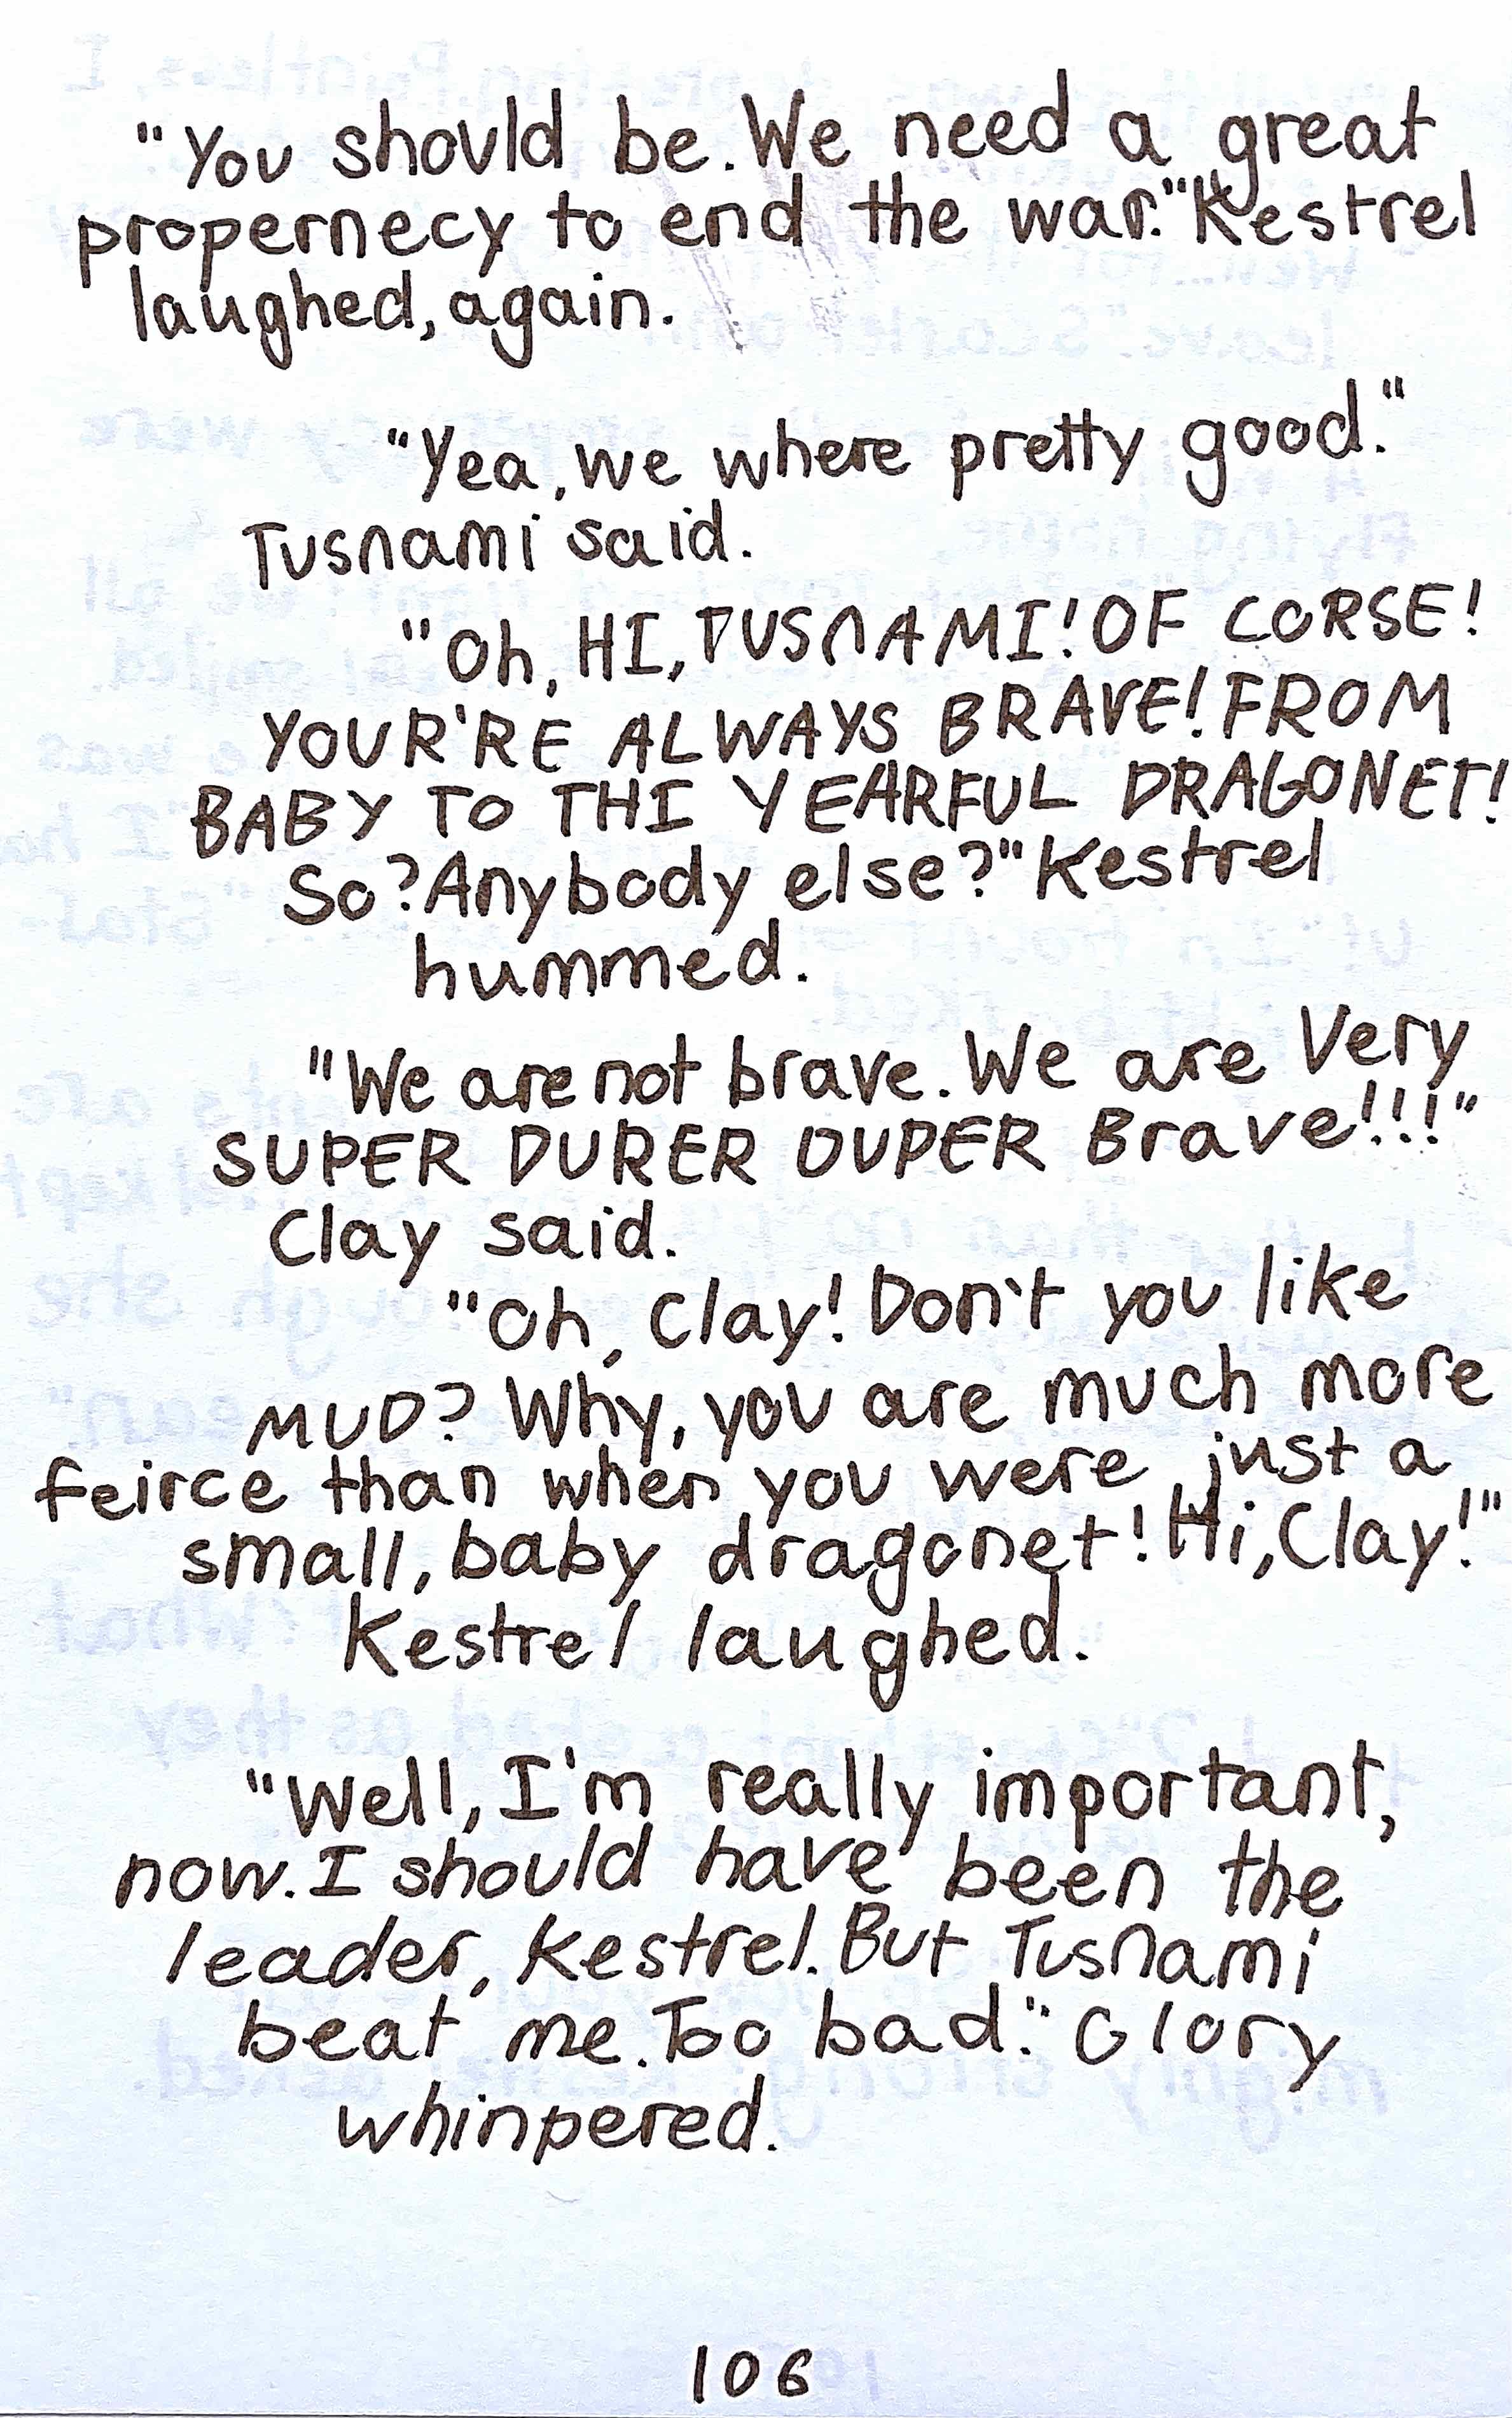 "You should be. We need a great
propernecy to end the war." Kestrel
laughed, again.
"Yea, we where pretty good."
Tusnami said.
"Oh, HI, TUSNAMI! OF CORSE!
YOUR'RE ALWAYS BRAVE! FROM
BABY TO THI YEARFUL DRAGONET!
So? Anybody else?" Kestrel
hummed.
"We are not brave. We are Very
SUPER DURER OUPER Brave!!!"
Clay said.
"Oh, Clay! Don't you like
MUD? Why, you are much more
feirce than when you were just a
small, baby dragonet! Hi, Clay!"
Kestrel laughed.
"Well, I'm really important,
now. I should have been the
leader, Kestrel. But Tusnami
beat me. Too bad." Glory
whinpered.
106